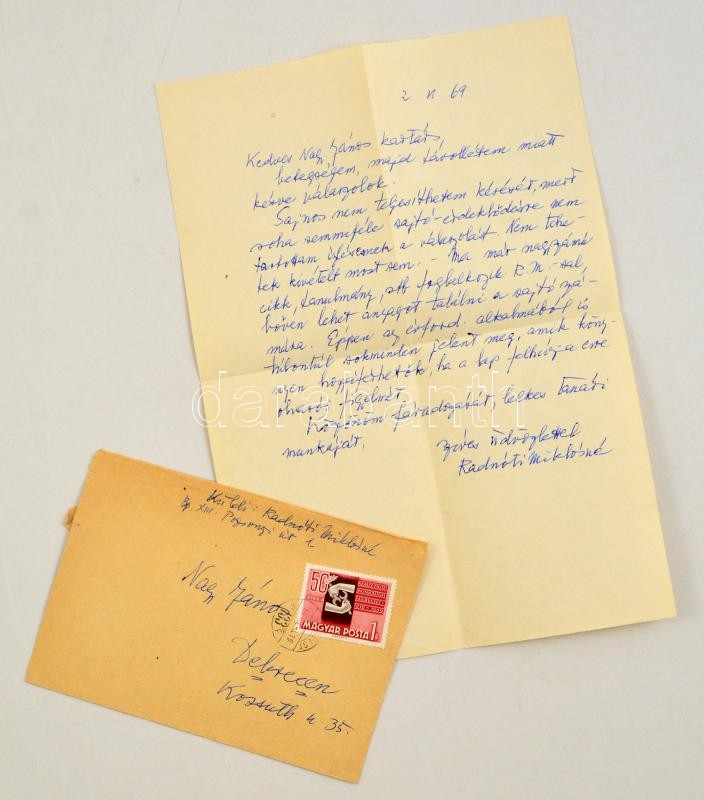 2 VI 69
Kedves Nagy János kartárs,
betegségem, majd távollétem miatt
késve válaszolok.
Sajnos nem teljesíthetem kérését, mert
soha semmiféle sajtó-érdeklődésre nem
tartottam a választ. Nem tehe-
tek kivételt most sem. - Ma már nagyszámú
cikk, tanulmány, stb foglalkozik R.M.-sal
bőven lehet anyagot találni a sajtó szá-
mára. Éppen az évford. alkalmából is
túlontúl sokminden jelent meg, amik köny-
nyen hozzáférhetők, ha a lap felhívja erre
olvasói figyelmét.
Köszönöm fáradozását, lelkes tanári
munkáját.
szíves üdvözlettel
Radnóti Miklósné
Küldi: Radnóti Miklósné
Bp. XIII. Pozsonyi út 1
Nagy János
Debrecen
Kossuth u 35.
50
MAGYAR POSTA 1
darabanth